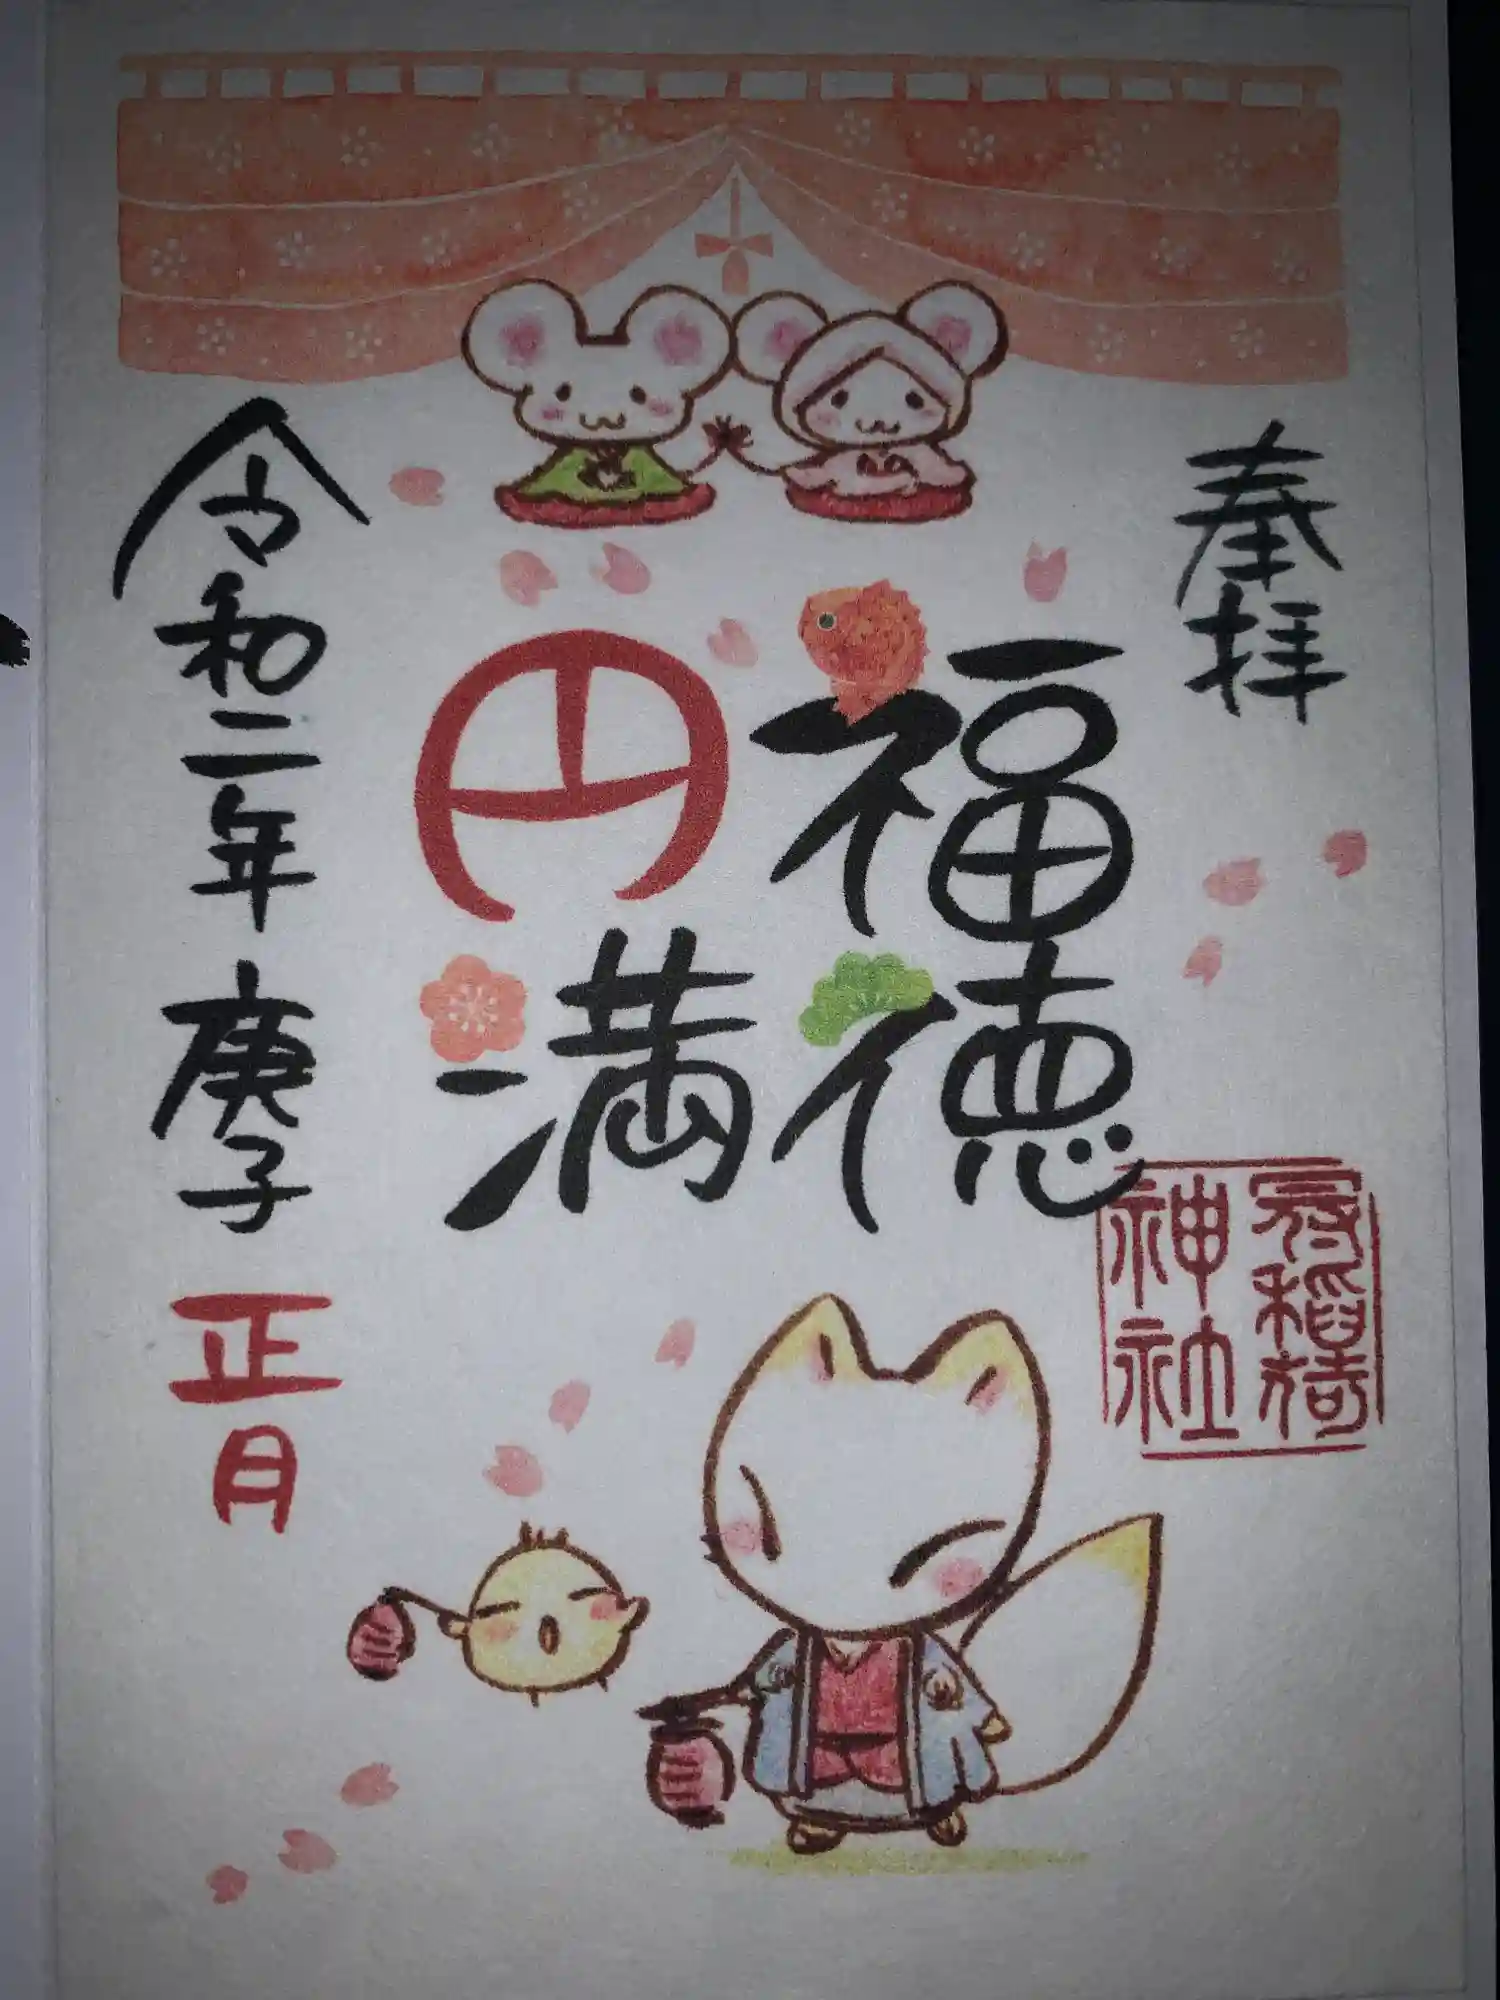 奉拝
福徳
円満
令和二年 庚子 正月
稲荷
神社